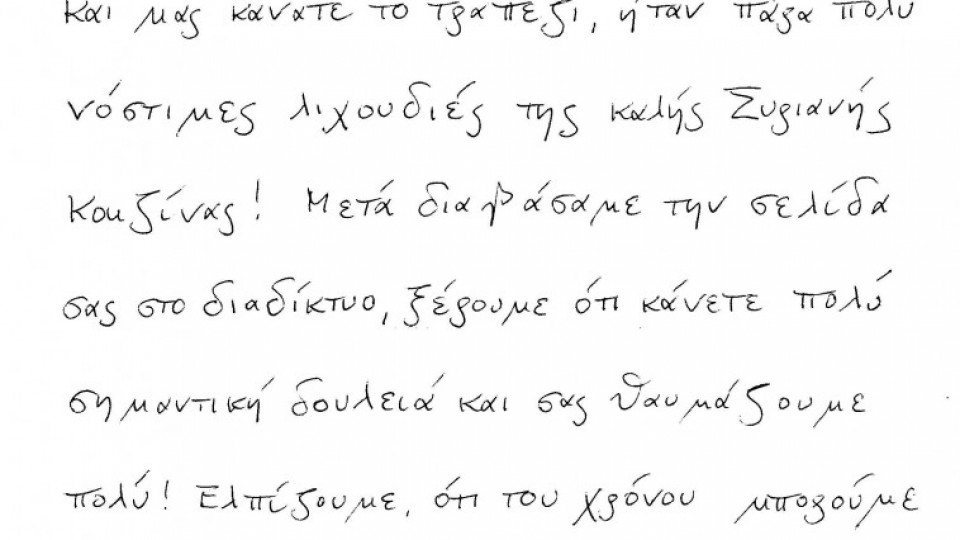 και μας κάνατε το τραπέζι, ήταν πάρα πολύ
νόστιμες λιχουδιές της καλής Συριανής
κουζίνας! Μετά διαβάσαμε την σελίδα
σας στο διαδίκτυο, ξέρουμε ότι κάνετε πολύ
σημαντική δουλειά και σας θαυμάζουμε
πολύ! Ελπίζουμε, ότι του χρόνου μπορούμε